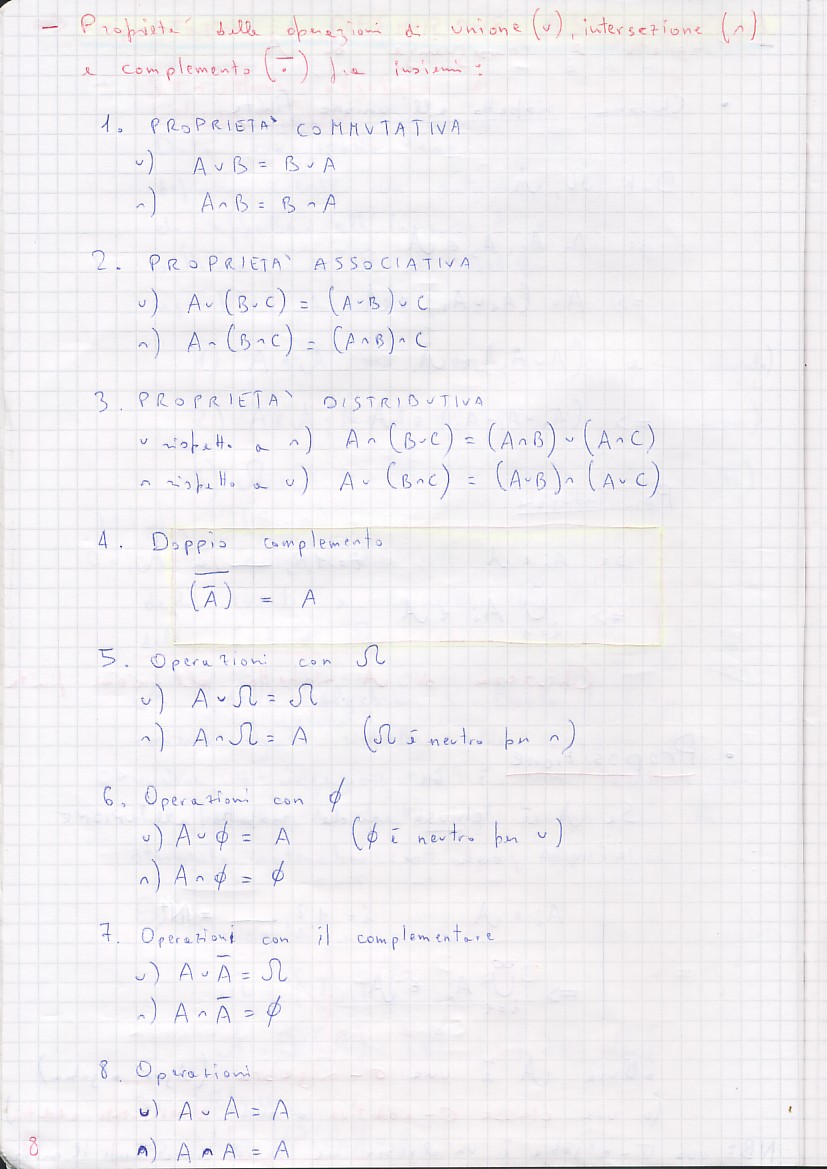 - Proprietà delle operazioni di unione (∪), intersezione (∩)
e complemento (‾·) fra insiemi:
1. PROPRIETA' COMMUTATIVA
∪) A ∪ B = B ∪ A
∩) A ∩ B = B ∩ A
2. PROPRIETA' ASSOCIATIVA
∪) A ∪ (B ∪ C) = (A ∪ B) ∪ C
∩) A ∩ (B ∩ C) = (A ∩ B) ∩ C
3. PROPRIETA' DISTRIBUTIVA
∪ rispetto a ∩) A ∩ (B ∪ C) = (A ∩ B) ∪ (A ∩ C)
∩ rispetto a ∪) A ∪ (B ∩ C) = (A ∪ B) ∩ (A ∪ C)
4. Doppio complemento
(A̅)‾ = A
5. Operazioni con Ω
∪) A ∪ Ω = Ω
∩) A ∩ Ω = A (Ω è neutro per ∩)
6. Operazioni con ϕ
∪) A ∪ ϕ = A (ϕ è neutro per ∪)
∩) A ∩ ϕ = ϕ
7. Operazioni con il complementare
∪) A ∪ A̅ = Ω
∩) A ∩ A̅ = ϕ
8. Operazioni
∪) A ∪ A = A
∩) A ∩ A = A
8